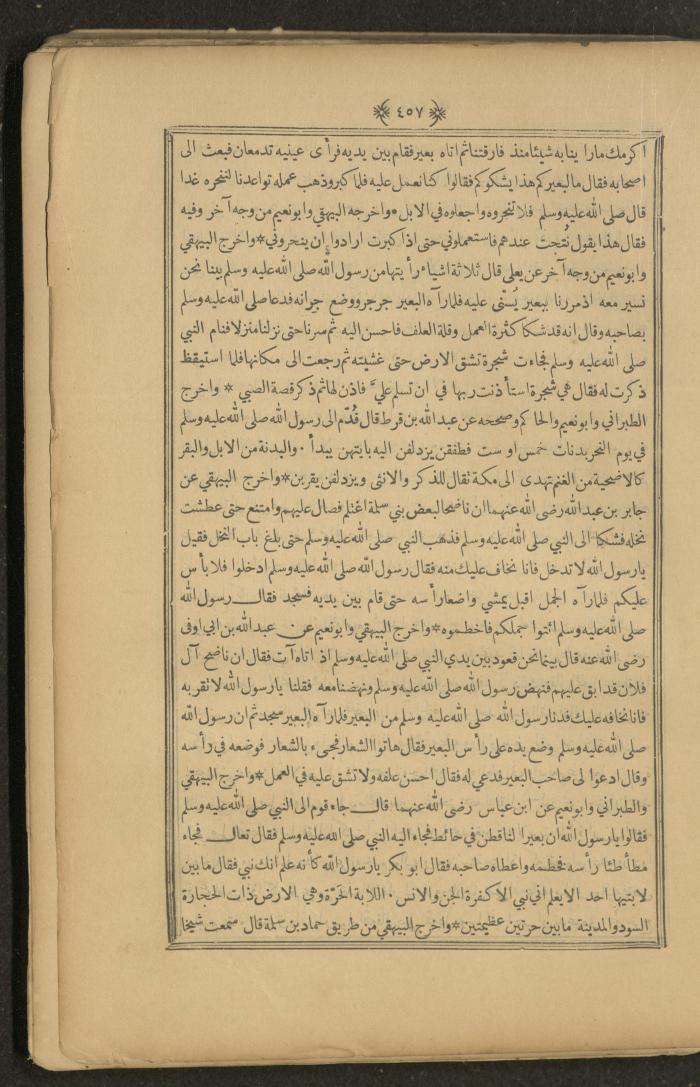 ﴿ ٤٥٧ ﴾
اكرمك مارا ينابه شيئامنذ فارقتناثم اتاه بعير فقام بين يديه فرأى عينيه تدمعان فبعث الى
اصحابه فقال مالبعيركم هذا يشكوكم فقالوا كنانعمل عليه فلما كبر وذهب عمله تواعدنا لننحره غدا
قال صلى الله عليه وسلم فلا تنحروه واجعلوه في الابل * واخرجه البيهقي وابونعيم من وجه آخر وفيه
فقال هذا يقول نُتجتُ عندهم فاستعملوني حتى اذا كبرت ارادوا ان ينحروني * واخرج البيهقي
وابونعيم من وجه آخر عن يعلى قال ثلاثة اشياء رأيتهامن رسول الله صلى الله عليه وسلم بينا نحن
نسير معه اذمررنا ببعير يُسْنَى عليه فلمارآه البعير جرجر ووضع جرانه فدعا صلى الله عليه وسلم
بصاحبه وقال انه قد شكا كثرة العمل وقلة العلف فاحسن اليه ثم سرنا حتى نزلنا منزلا فنام النبي
صلى الله عليه وسلم فجاءت شجرة تشق الارض حتى غشيته ثم رجعت الى مكانها فلما استيقظ
ذكرت له فقال هي شجرة استأذنت ربها في ان تسلم عليَّ فاذن لها ثم ذكر قصة الصبي * واخرج
الطبراني وابونعيم والحاكم وصححه عن عبدالله بن قرط قال قُدّم الى رسول الله صلى الله عليه وسلم
في يوم النحر بدنات خمس او ست فطفقن يزدلفن اليه بايتهن يبدأ . والبدنة من الابل والبقر
كالاضحية من الغنم تهدى الى مكة تقال للذكر والانثى ويزدلفن يقربن * واخرج البيهقي عن
جابر بن عبدالله رضى الله عنهما ان ناضحا لبعض بني سلمة اغتلم فصال عليهم وامتنع حتى عطشت
نخله فشكا الى النبي صلى الله عليه وسلم فذهب النبي صلى الله عليه وسلم حتى بلغ باب النخل فقيل
يارسول الله لا تدخل فانا نخاف عليك منه فقال رسول الله صلى الله عليه وسلم ادخلوا فلا بأس
عليكم فلمارآه الجمل اقبل يمشي واضعا رأسه حتى قام بين يديه فسجد فقال رسول الله
صلى الله عليه وسلم ائتوا جملكم فاخطموه * واخرج البيهقي وابونعيم عن عبدالله بن ابي اوفى
رضى الله عنه قال بينمانحن قعود بين يدي النبي صلى الله عليه وسلم اذ اتاه آت فقال ان ناضح آل
فلان قد ابق عليهم فنهض رسول الله صلى الله عليه وسلم ونهضنامعه فقلنا يارسول الله لا تقربه
فانا نخافه عليك فدنا رسول الله صلى الله عليه وسلم من البعير فلمارآه البعير سجد ثم ان رسول الله
صلى الله عليه وسلم وضع يده على رأس البعير فقال هاتوا الشعار فجيء بالشعار فوضعه في رأسه
وقال ادعوا لى صاحب البعير فدعي له فقال احسن علفه ولا تشق عليه في العمل * واخرج البيهقي
والطبراني وابونعيم عن ابن عباس رضى الله عنهما قال جاء قوم الى النبي صلى الله عليه وسلم
فقالوا يارسول الله ان بعيرا لنا قطن في حائط فجاء اليه النبي صلى الله عليه وسلم فقال تعال فجاء
مطأطئا رأسه فخطمه واعطاه صاحبه فقال ابو بكر يارسول الله كأنه علم انك نبي فقال مابين
لابتيها احد الا يعلم اني نبي الا كفرة الجن والانس . اللابة الحَرّة وهي الارض ذات الحجارة
السود والمدينة مابين حرتين عظيمتين * واخرج البيهقي من طريق حماد بن سلمة قال سمعت شيخا